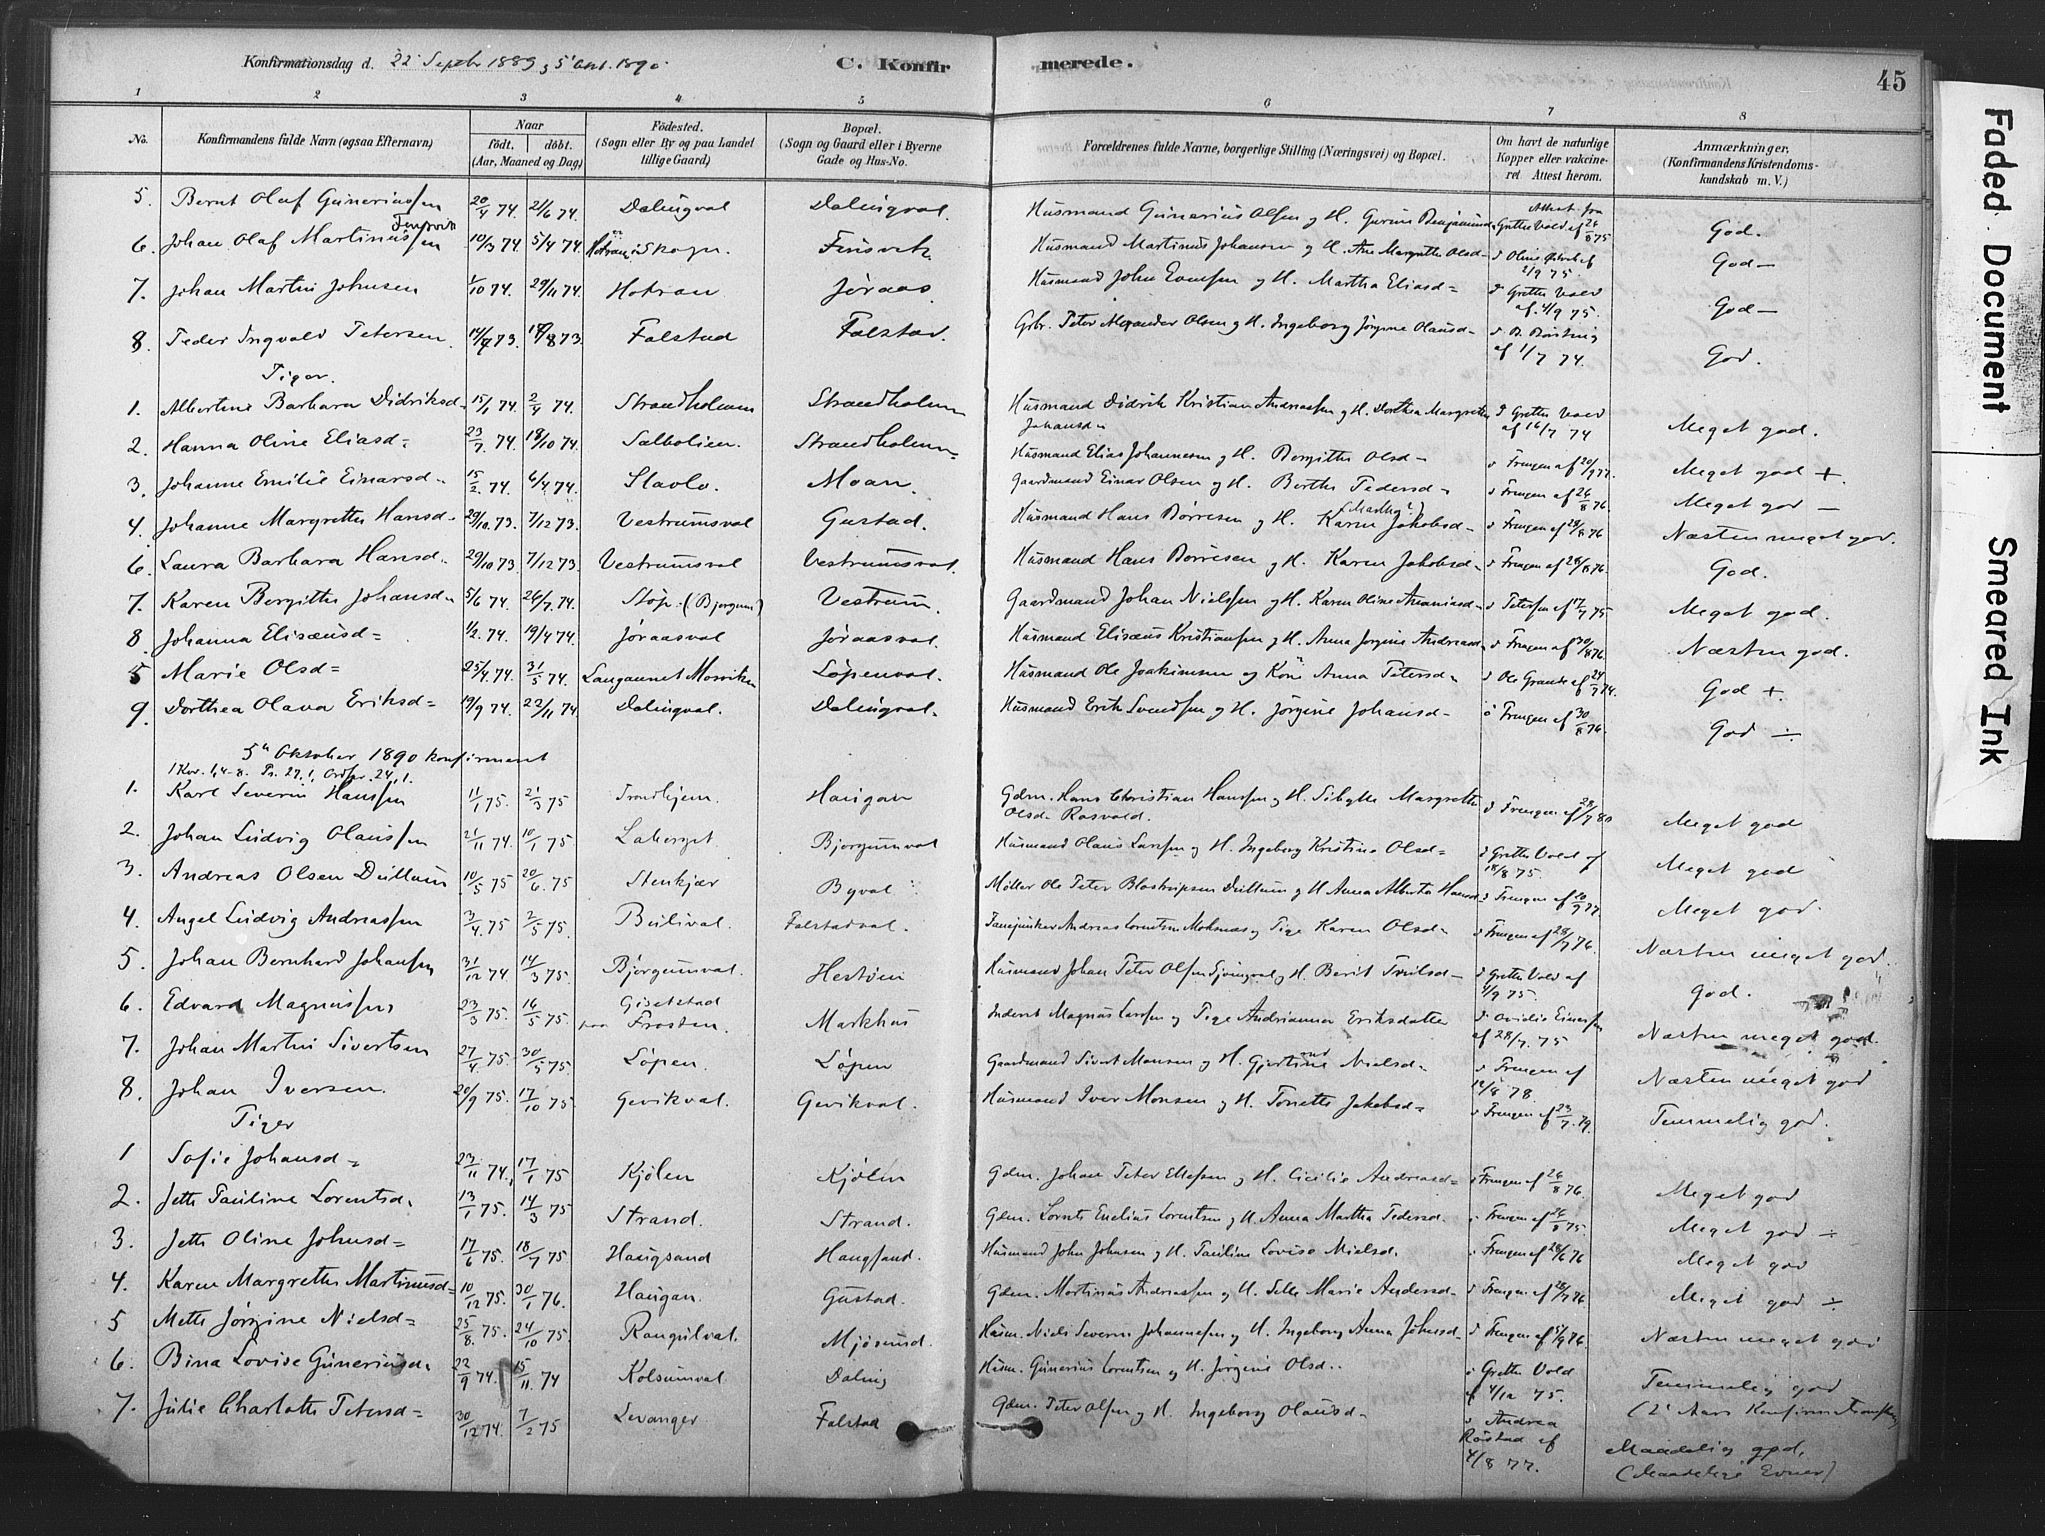 Konfirmationsdag d. 22 Septbr 1889 & 5 Okt. 1890
C. Konfir merede. 45
1 2 3 4 5 6 7 8
No. Konfirmandens fulde Navn (ogsaa Efternavn) Naar født. døbt. (Aar, Maaned og Dag) Fødested. (Sogn eller By og paa Landet tillige Gaard) Bopæl. (Sogn og Gaard eller i Byerne Gade og Hus-No. Forældrenes fulde Navne, borgerlige Stilling (Næringsvei) og Bopæl. Om havt de naturlige Kopper eller vakcineret. Attest herom. Anmærkninger, (Konfirmandens Kristendomskundskab m. V.)
5. Bernt Olaf Guneriussen 20/4 74. 21/6 74. Dalingval Dalingval. Husmand Gunerius Olsen og H. Gurine Benjaminsd. Attest fra Grethe Vold af 24/8 75 God.
6. Johan Olaf Martinussen 10/3 74 5/4 74. Hotran i Skogn. Finsvik Husmand Martinus Johansen og H. Ane Margrethe Olsd- 2/9 75. God-
7. Johan Martin Johnsen 1/10 74. 29/11 74. Hotran Jøraas Husmand John Evensen og H. Martha Eliasd= Grethe Vold af 4/9 75. God-
8. Peder Ingvald Petersen 14/7 73. 17/8 73. Falstad Falstad. Gbr. Peter Alexander Olsen og H. Ingeborg Jørgine Olausd- af 1/7 74. God.
Piger.
1. Albertine Barbara Didriksd. 15/1 74. 2/4 74. Strandholmen Strandholmen Husmand Didrik Kristian Andreassen og H. Dorthea Margrethe Johansd- Grethe Vold af 16/7 74 Meget god.
2. Hanna Oline Eliasd= 23/7. 74. 18/10 74. Salbolien. Strandholmen Husmand Elias Johannesen og H. Bergitte Olsd- Frengen af 20/9 77. Meget god +.
3. Johanne Emilie Einarsd. 15/2. 74. 6/4 74. Stavlo. Moan. Gaardmand Einar Olsen og H. Berthe Pedersd- Frengen af 26/8 76. Meget god -
4. Johanne Margrethe Hansd. 29/10. 73. 7/12 73. Vestrumsval Gustad. Husmand Hans Børresen og H. Karen Jakobsd- Frengen af 28/8 76 Næsten meget god.
6. Laura Barbara Hansd. 29/10 73 7/12 73. Vestrumsval Vestrumsval. Husmand Hans Børresen og H. Karen Jakobsd- Frengen af 28/8 76. God.
7. Karen Bergitte Johansd. 5/6 74. 26/7 74. Støp. (Bjergum) Vestrum. Gaardmand Johan Nielssen og H. Karen Oline Ananiasd- Petersen af 17/7 75 Meget god.
8. Johanna Elisæusd= 1/2. 74. 19/4 74. Jøraasval Jøraasval. Husmand Elisæus Kristiansen og H. Anna Jørgine Andreasd Frengen af 30/8 76. Næsten god.
5 Marie Olsd= 25/4. 74. 31/5 74. Langaunet Mosviken Løpenval. Husmand Ole Joakimsen og Kone Anna Petersd- Ole Grande af 24/7 74. God +
9. Dorthea Olava Eriksd= 19/9 74. 22/11 74. Dalingval. Dalingval. Husmand Erik Svendsen og H. Jørgine Johansd- Frengen af 30/8 76. God ÷
5te Oktober 1890 konfirmeret
1 Kor. 1,4-8. Ps. 27,1. Ordspr. 24,1.
1. Karl Severin Hanssen 11/1 75. 21/3 75 Trondhjem. Haugan Gdm. Hans Christian Hanssen og H. Sibylle Margrethe Olsd. Rosvold. Frengen af 28/7 80 Meget god
2. Johan Ludvig Olaussen 21/11 74. 10/1 75. Laberget Bjergumval Husmand Olaus Larssen og H. Ingeborg Kristine Olsd= Grethe Vold af 18/8 75. Meget god
3. Andreas Olsen Dullum 10/5 75 20/6. 75 Stenkjær Byval Møller Ole Peter Dullum og H Anna Alberta Hansd Frengen af 10/9 77. Meget god.
4. Angel Ludvig Andreassen 3/4. 75 2/5 75. Bulival. Falstadval. Andreas Lorentsen og Pige Karen Olsd- Frengen af 28/7 76. Næsten meget god.
5. Johan Bernhard Johansen 31/12 74 14/3 75. Bjergumval. Hestøien Husmand Johan Peter Olsen og H. Berit Toulsd- Grethe Vold af 4/9 75. God.
6. Edvard Magnussen 23/3 75. 16/5 75. paa Frosten. Markhus Inderst Magnus Larssen og Pige Andrianna Eriksdatter af 28/7. 75 Næsten meget god.
7. Johan Martin Sivertsen 27/4. 75. 30/5 75. Løpen. Løpen Gaardmand Sivert Monsen og H. Gjertine Nielsd- Frengen af 12/8 78. Næsten meget god
8. Johan Iversen 20/9 75. 17/10 75. Gevikval. Gevikval. Husmand Iver Monsen og H. Tonette Jakobsd= Frengen af 23/7. 79. Temmelig god.
Piger
1 Sofie Johansd= 23/11 74. 17/1 75 Kjølen Kjølen Gdm. Johan Peter Ellefsen og H. Cicilie Andreasd= Frengen af 26/8 76. Meget god
2. Jette Pauline Lorentsd. 13/1 75. 14/3 75 Strand. Strand. Gdm. Lornts Enelius Lorentsen og H. Anna Martha Pedersd. Frengen af 26/8 75. Meget god ÷
3. Jette Oline Johnsd= 17/6 75. 18/7 75 Haugsand Haugsand. Husmand John Johnsen og H. Pauline Lovise Nielsd. Frengen af 28/6 76 Meget god
4. Karen Margrethe Martinusd= 10/12 75. 30/1 76. Haugan. Gustad. Gdm. Martinus Andreassen og H. Marie Andersd= Frengen af 26/7 76 Meget god ÷
5 Mette Jørgine Nielsd= 25/8. 75. 24/10 75 Rangulval. Mjøsund. Husm. Niels Severin Johannesen og H. Ingeborg Anna Johnsd. Frengen af 15/9 76. Næsten meget god
6. Bina Lovise Guneriusd. 22/9 74. 15/11. 74 Kolsumval. Daling Husm. Gunerius Lorentsen og H. Jørgine Olsd. Grethe Vold af 4/12 75. Temmelig god (2 Aars Konfirmationsforb.
7. Julie Charlotte Petersd= 30/12 74. 7/2 75 Levanger Falstad Gdm. Peter Olsen og H. Ingeborg Olausd- Andrea Røstad af 4/8 77. Maadelig god, (Maadelige Evner)
Faded Document
Smeared Ink